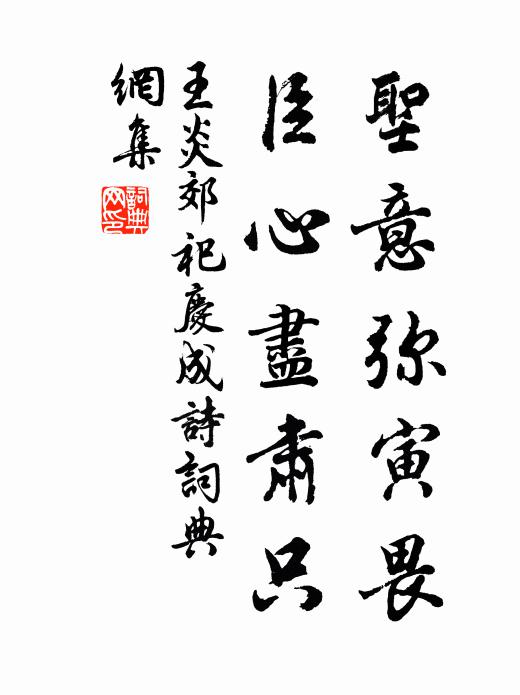 聖意弥寅畏
臣心盡肅只
王炎郊祀慶成詩詞典
網集
詞典
网印